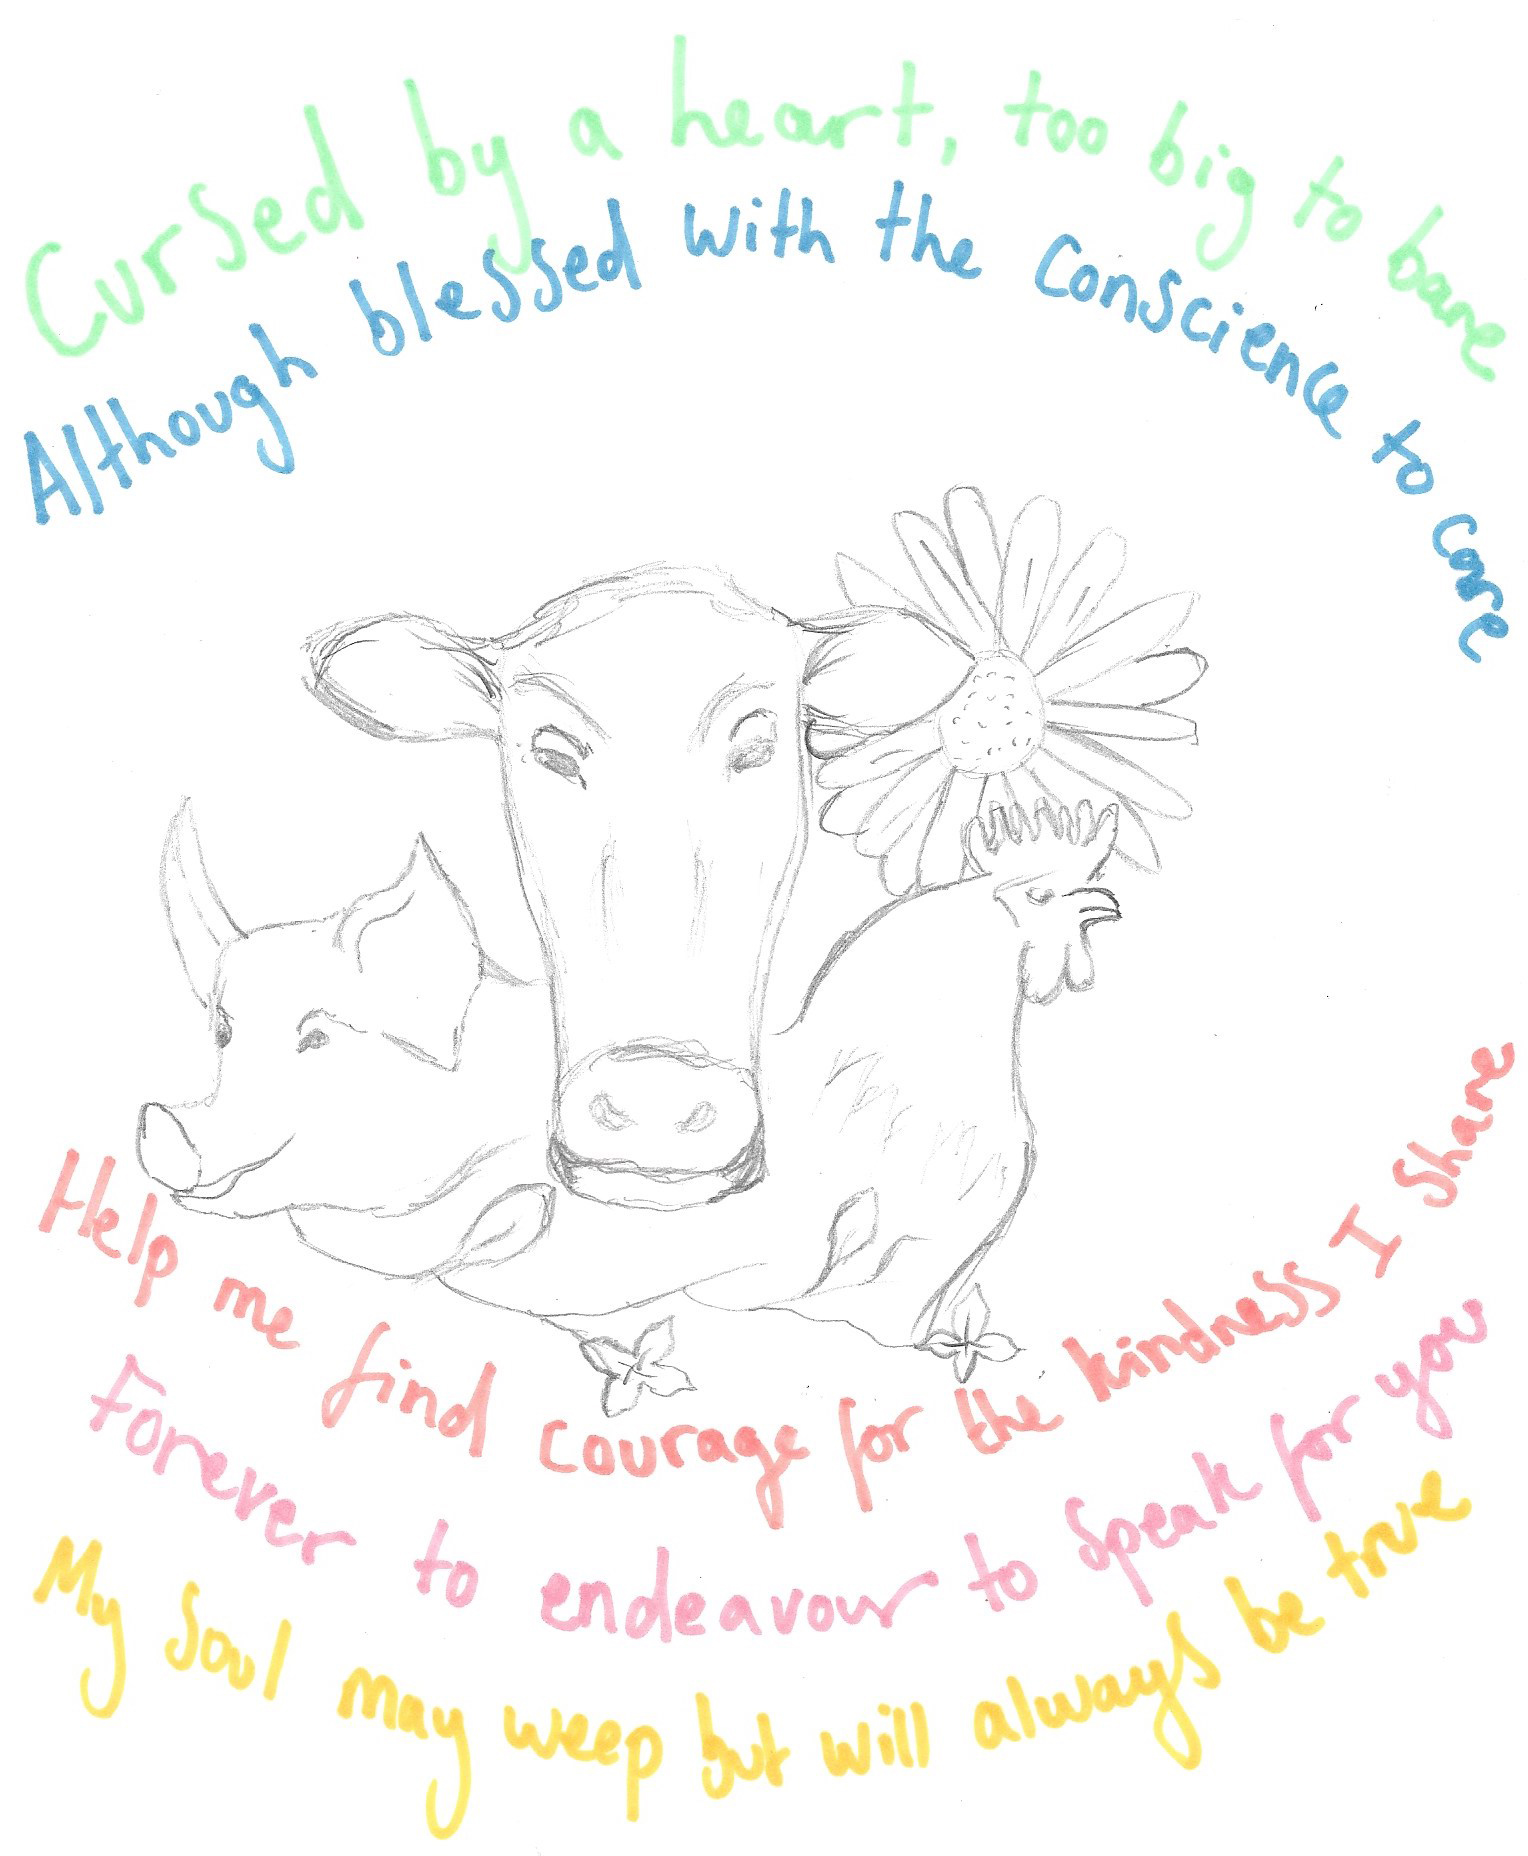 Cursed by a heart, too big to bare
Although blessed with the conscience to care
Help me find courage for the kindness I share
Forever to endeavour to speak for you
My soul may weep but will always be true